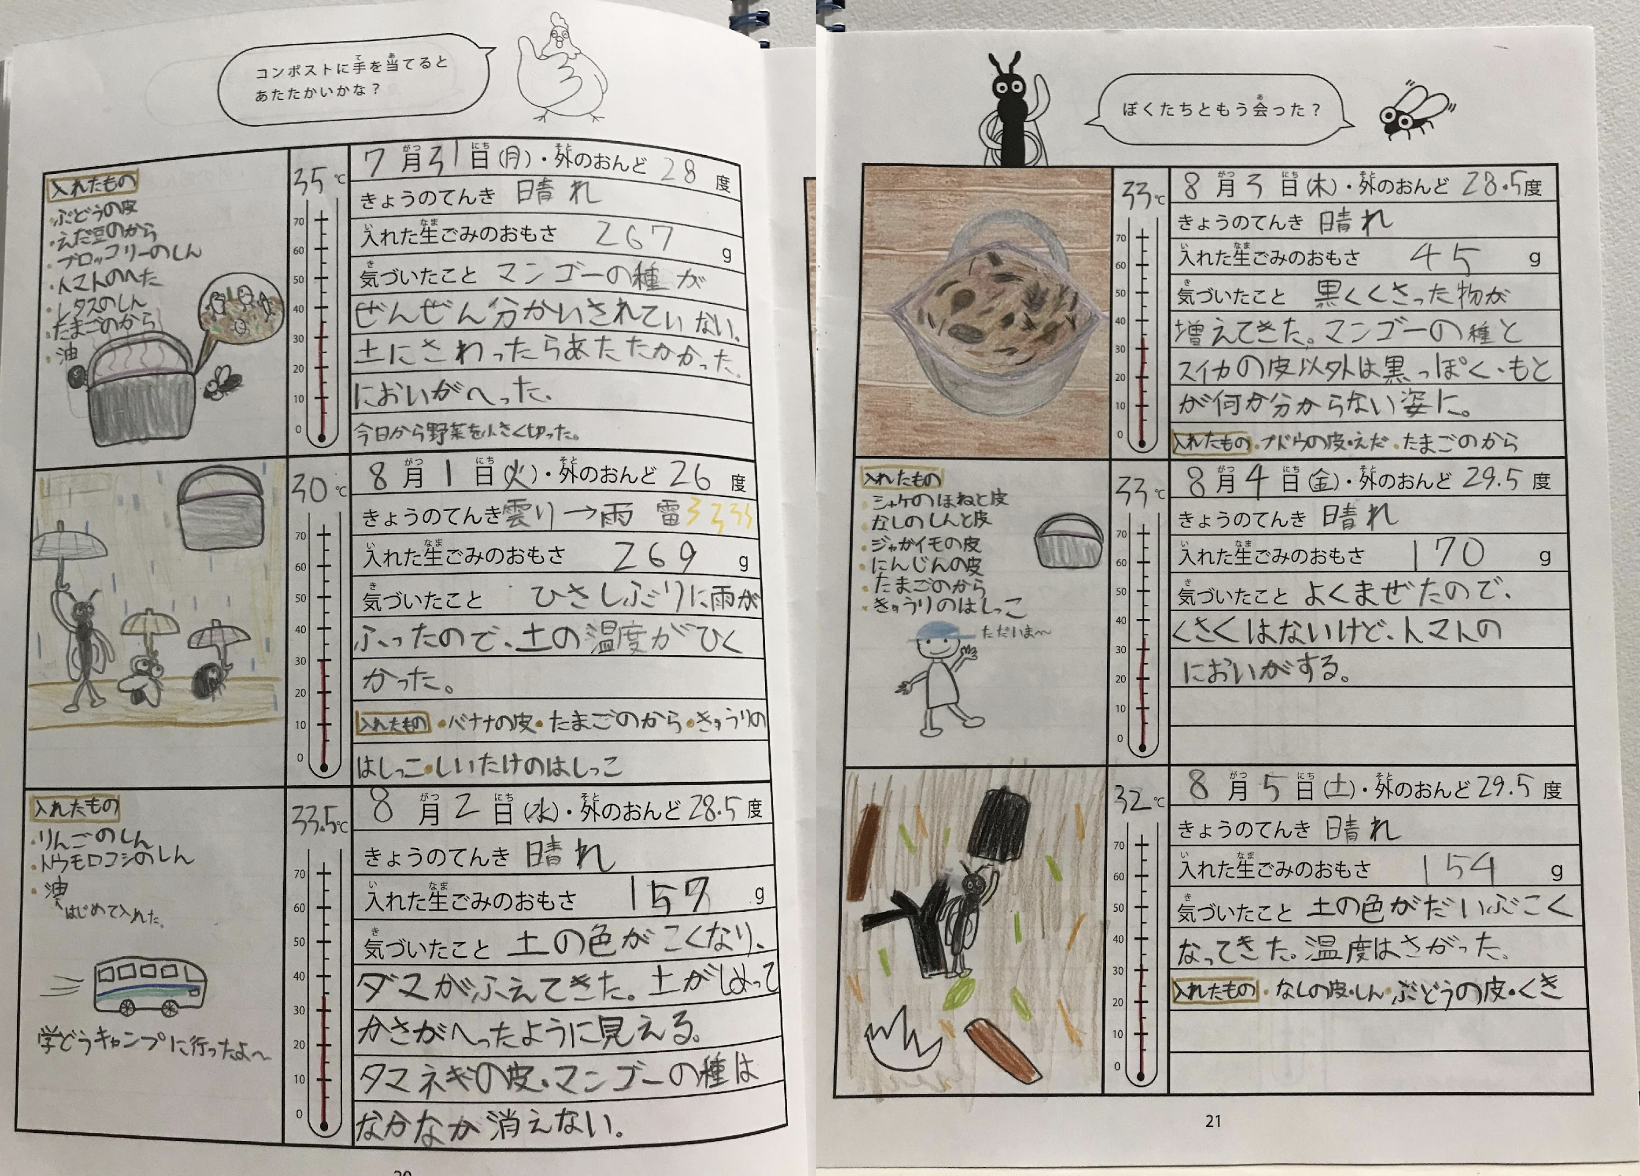 コンポストに手を当てると
あたたかいかな？
入れたもの
・ぶどうの皮
・えだ豆のから
・ブロッコリーのしん
・トマトのへた
・レタスのしん
・たまごのから
・油
35℃
70
60
50
40
30
20
10
0
7月31日(月)・外のおんど 28度
きょうのてんき 晴れ
入れた生ごみのおもさ 267g
気づいたこと マンゴーの種が
ぜんぜん分かいされていない。
土にさわったらあたたかかった。
においがへった。
今日から野菜を小さく切った。
30℃
70
60
50
40
30
20
10
0
8月1日(火)・外のおんど 26度
きょうのてんき 雲り→雨 雷
入れた生ごみのおもさ 269g
気づいたこと ひさしぶりに雨が
ふったので、土の温度がひく
かった。
入れたもの・バナナの皮・たまごのから・きゅうりの
はしっこ・しいたけのはしっこ
入れたもの
・りんごのしん
・トウモロコシのしん
・油
はじめて入れた。
学どうキャンプに行ったよ〜
33.5℃
70
60
50
40
30
20
10
0
8月2日(水)・外のおんど 28.5度
きょうのてんき 晴れ
入れた生ごみのおもさ 157g
気づいたこと 土の色がこくなり、
ダマがふえてきた。土がしめって
かさがへったように見える。
タマネギの皮・マンゴーの種は
なかなか消えない。
20
ぼくたちともう会った？
33℃
70
60
50
40
30
20
10
0
8月3日(木)・外のおんど 28.5度
きょうのてんき 晴れ
入れた生ごみのおもさ 45g
気づいたこと 黒くくさった物が
増えてきた。マンゴーの種と
スイカの皮以外は黒っぽく、もと
が何か分からない姿に。
入れたもの・ブドウの皮・えだ・たまごのから
入れたもの
・シャケのほねと皮
・なしのしんと皮
・ジャガイモの皮
・にんじんの皮
・たまごのから
・きゅうりのはしっこ
ただいま〜
33℃
70
60
50
40
30
20
10
0
8月4日(金)・外のおんど 29.5度
きょうのてんき 晴れ
入れた生ごみのおもさ 170g
気づいたこと よくまぜたので、
くさくはないけど、トマトの
においがする。
32℃
70
60
50
40
30
20
10
0
8月5日(土)・外のおんど 29.5度
きょうのてんき 晴れ
入れた生ごみのおもさ 154g
気づいたこと 土の色がだいぶこく
なってきた。温度はさがった。
入れたもの・なしの皮・しん・ぶどうの皮・くき
21